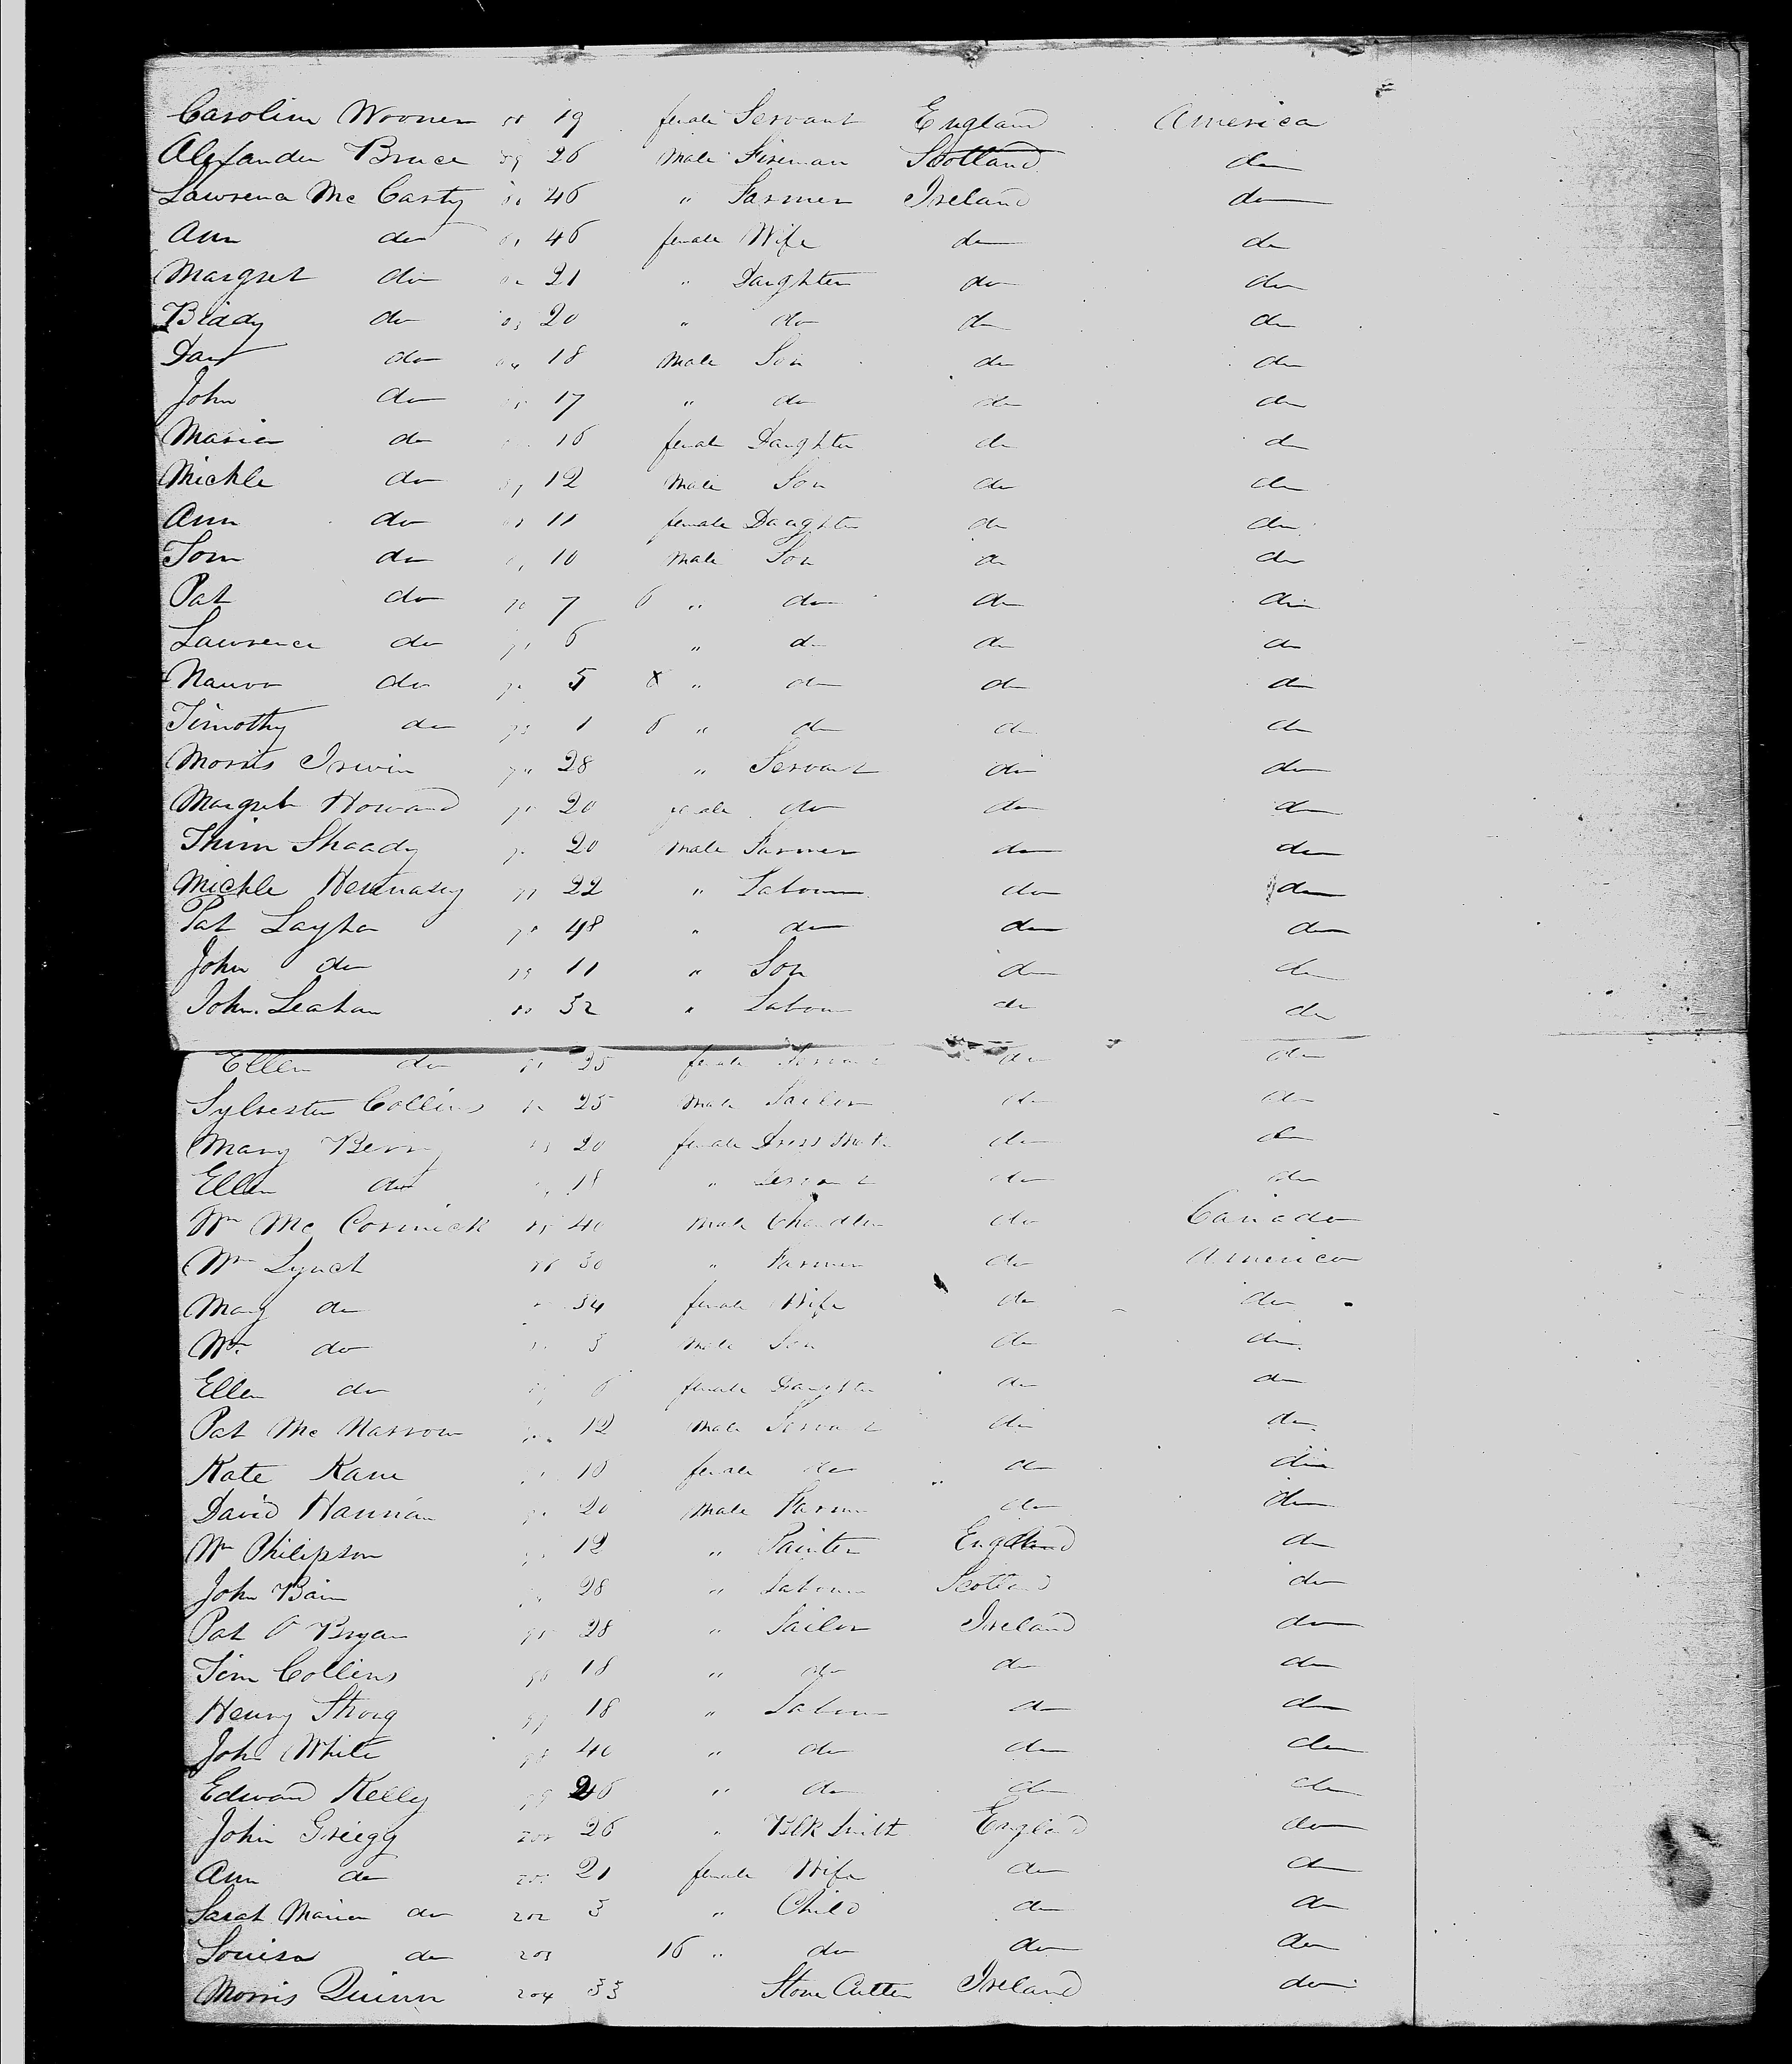 Caroline Wooner 58 19 female Servant England America
Alexander Bruce 59 26 Male Fireman Scotland do
Lawrena Mc Carty 60 46 " Farmer Ireland do
Ann do 61 46 female Wife do do
Margret do 62 21 " Daughter do do
Biddy do 63 20 " do do do
Dan do 64 18 Male Son do do
John do 17 " do do do
Maria do 16 female Daughter do do
Mickle do 67 12 Male Son do do
Ann do 11 female Daughter do do
Tom do 10 Male Son do do
Pat do 70 7 6 " do do do
Lawrence do 71 6 " do do do
do 5 " do do do
Timothy do 73 1 6 " do do do
Morris Irwin 28 " Servant do do
Margret Howard 20 female do do do
Shaady 20 Male Farmer do do
Mickle Hennasy 77 22 " Labourer do do
Pat Layho 78 48 " do do do
John do 79 11 " Son do do
John Leahan 80 32 " Labour do do
Ellen do 81 35 female Servant do do
Sylvester Collins 82 25 Male Sailor do do
Mary Berry 83 20 female Dress Mak do do
Ellen do 18 " Servant do do
Wm Mc Cormick 85 40 Male Chandler do Canada
Wm Lynch 86 30 " Farmer do America
Mary do 34 female Wife do do
Wm do 3 Male Son do do
Ellen do 6 female Daughter do do
Pat Mc Narrow 12 Male Servant do do
Kate Kane 10 female do do do
David Hannan 20 Male Farmer do do
Wm Philipson 19 " Painter England do
John Bain 28 " Labour Scotland do
Pat O Bryan 95 28 " Sailor Ireland do
Tim Collins 96 18 " do do do
Henry Strong 97 18 " Labour do do
John White 98 40 " do do do
Edward Kelly 99 " do do do
John Griegg 200 26 " Blk Smith England do
Ann do 201 21 female Wife do do
Sarah Maria do 202 3 " Child do do
Louisa do 203 16 " do do do
Morris Quinn 204 33 Stone Cutter Ireland do